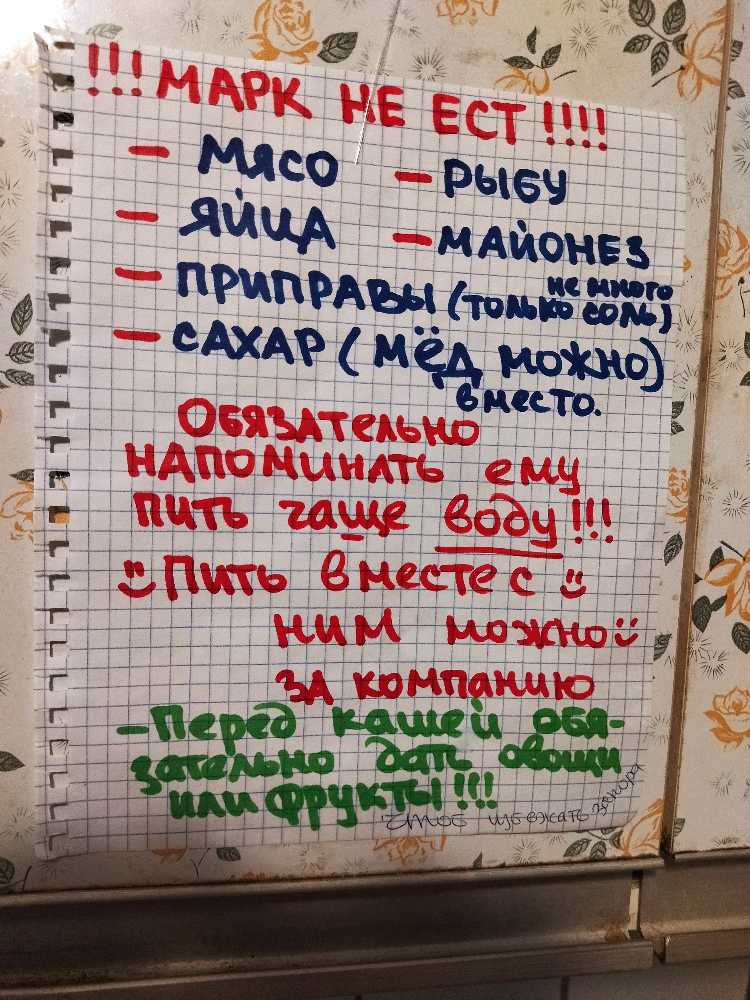 !!! МАРК НЕ ЕСТ !!!!
- МЯСО - РЫБУ
- ЯЙЦА - МАЙОНЕЗ
- ПРИПРАВЫ (только соль)
не много
- САХАР (МЁД можно)
вместо.
ОБЯЗАТЕЛЬНО
НАПОМИНАТЬ ему
пить чаще воду!!!
Пить вместе с
ним можно
ЗА компанию
- Перед кашей обя-
зательно дать овощи
или фрукты!!!!
чтоб избежать запора